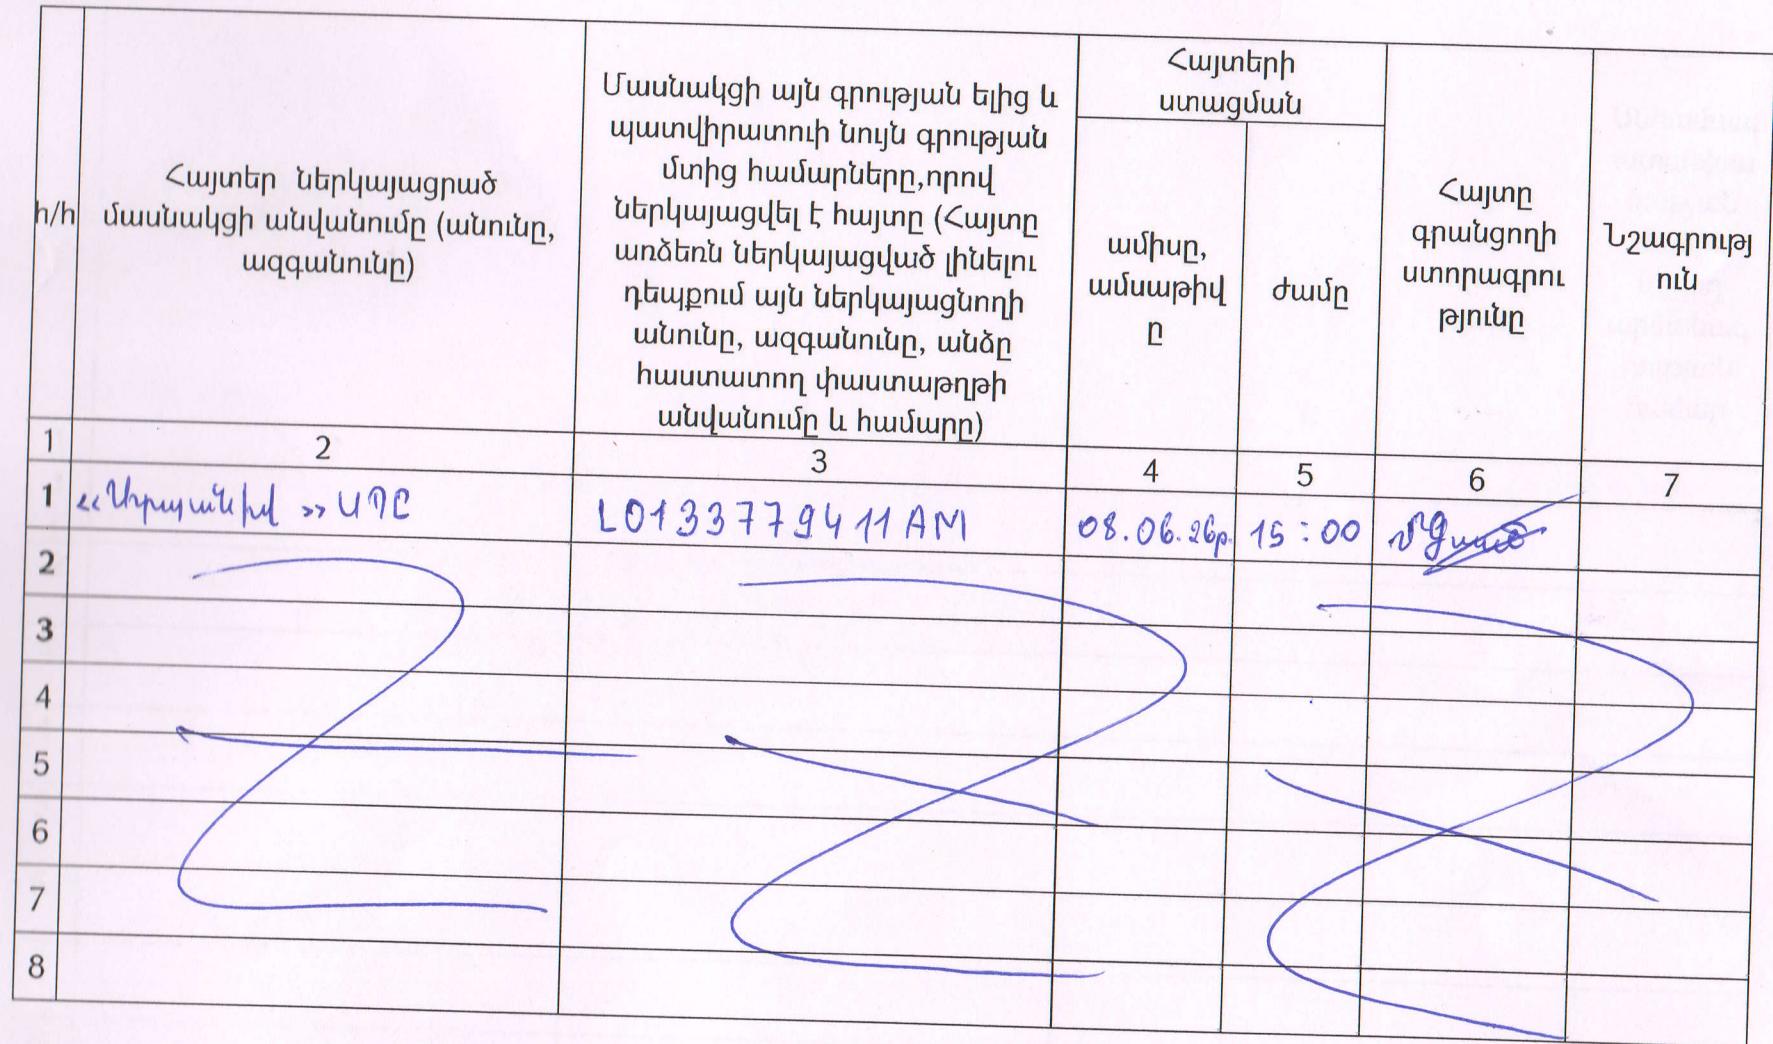 h/h
Հայտեր ներկայացրած
մասնակցի անվանումը (անունը,
ազգանունը)
Մասնակցի այն գրության ելից և
պատվիրատուի նույն գրության
մտից համարները,որով
ներկայացվել է հայտը (Հայտը
առձեռն ներկայացված լինելու
դեպքում այն ներկայացնողի
անունը, ազգանունը, անձը
հաստատող փաստաթղթի
անվանումը և համարը)
Հայտերի
ստացման
ամիսը,
ամսաթիվ
ը
ժամը
Հայտը
գրանցողի
ստորագրու
թյունը
Նշագրությ
ուն
1 2 3 4 5 6 7
1 ՍՊԸ LO133779411AM 08.06.26թ. 15:00
2
3
4
5
6
7
8